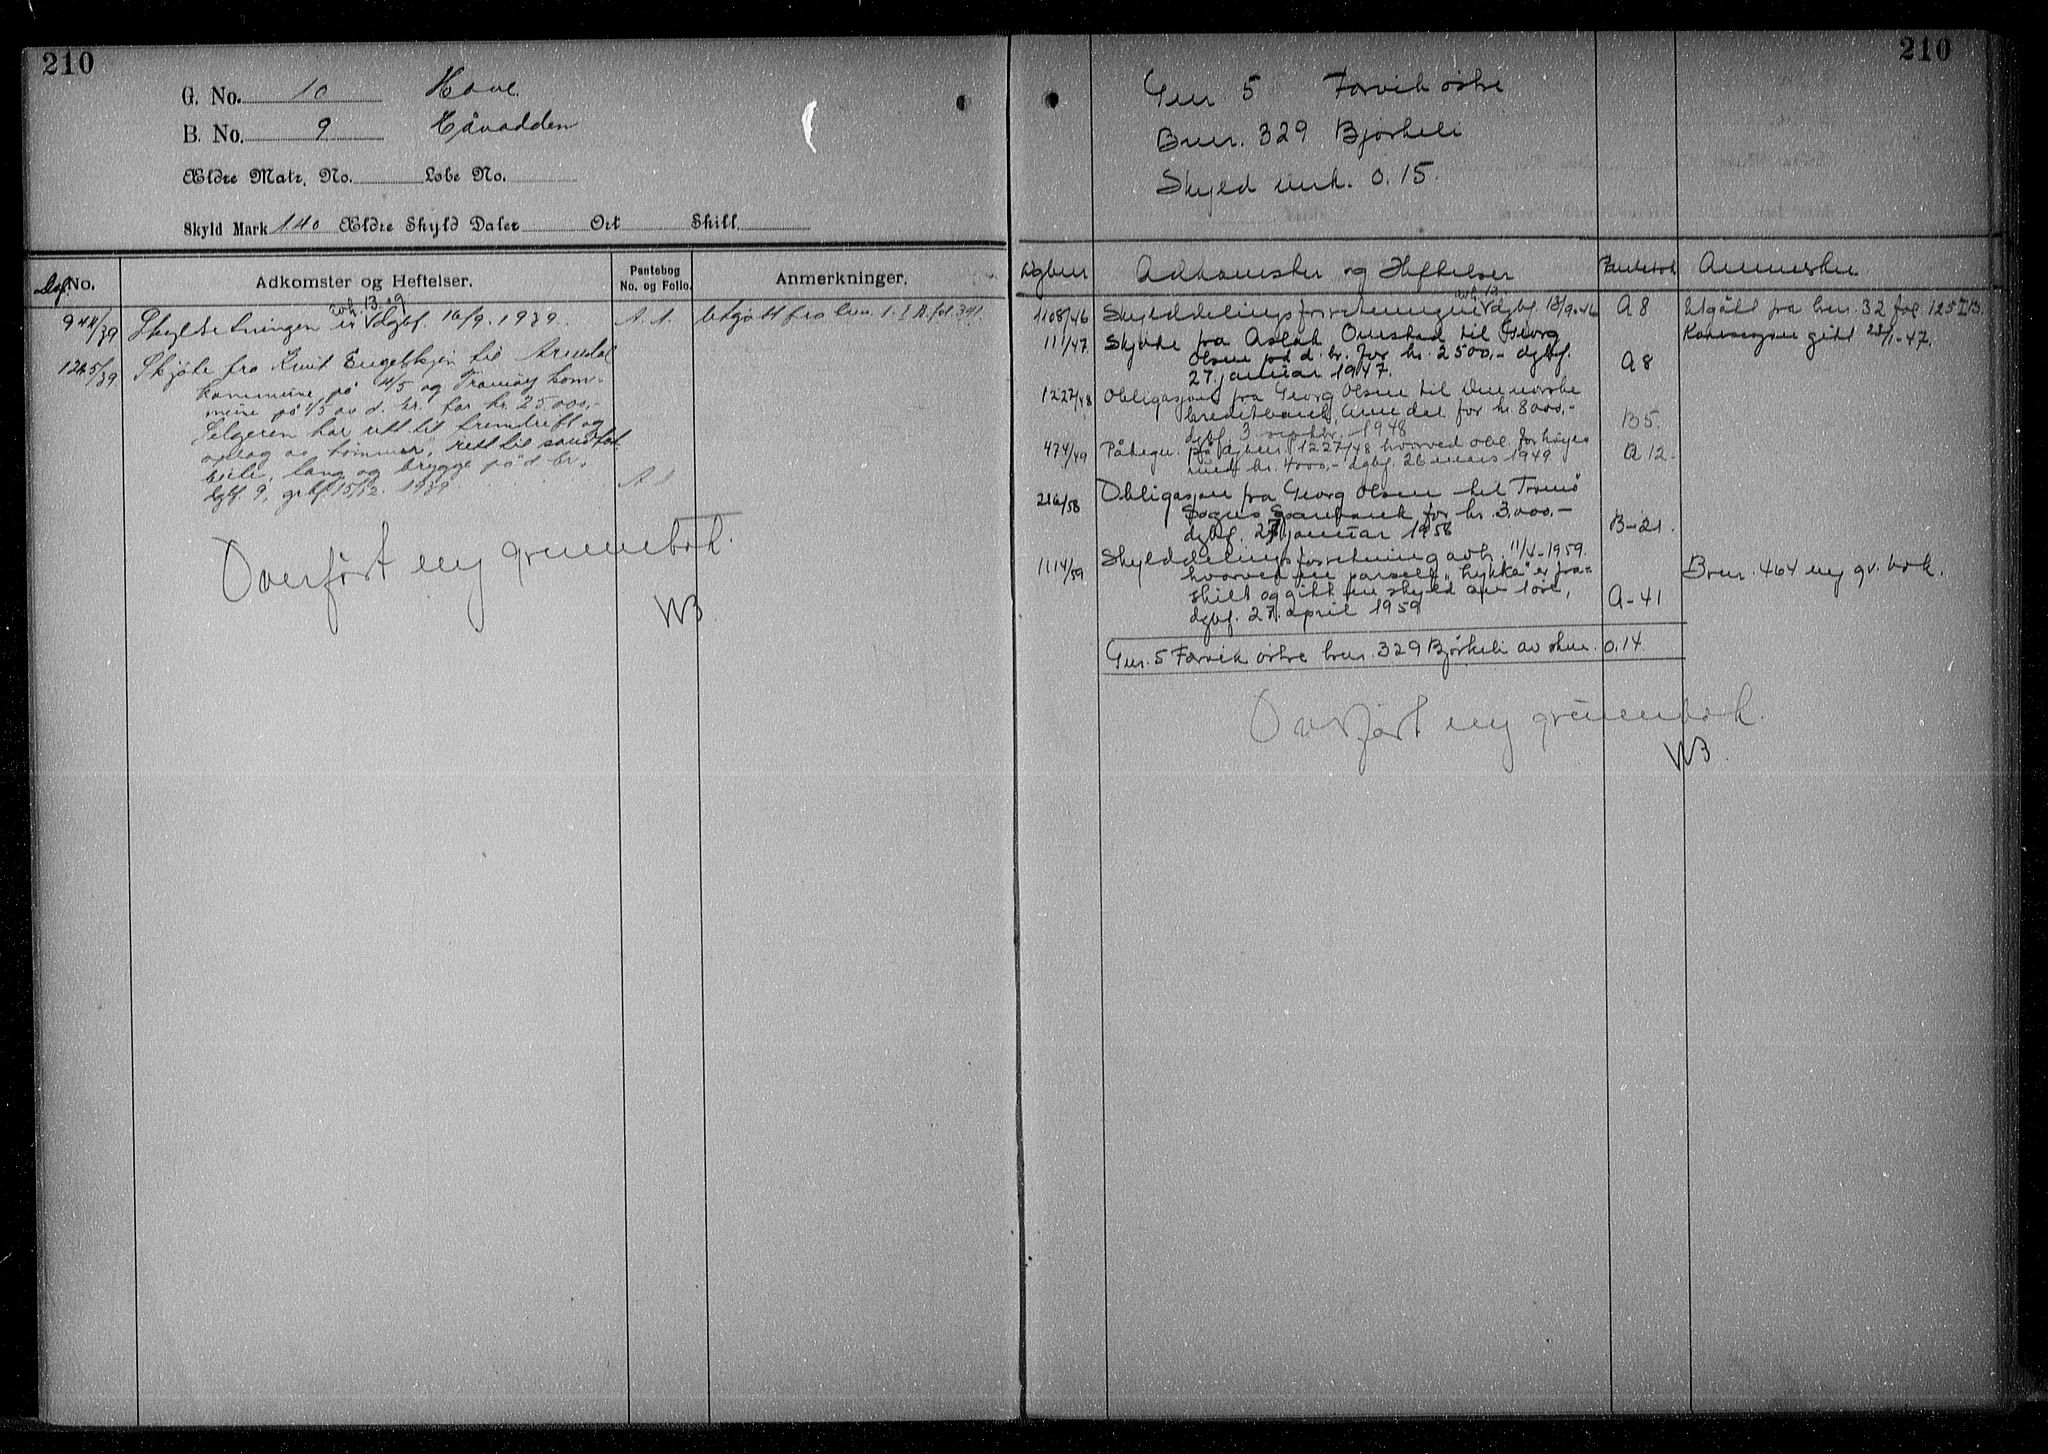 210
G. No. 10 Hove
B. No. 9 Håvodden
Ældre Matr. No. Løbe No.
Skyld Mark 1.40 Ældre Skyld Daler Ort Skill.
Dgb. No. Adkomster og Heftelser. Pantebog No. og Folio. Anmerkninger.
avh. 13.-9
944/39 Skyldsetningen er dgbf. 16/9. 1939. A.1. Utgått fra bnr. 1. I B. fol. 341.
1265/39 Skjöte fra Knut Engelskjøn til Arendal
kommune på 4/5 og Tromøy kom-
mune på 1/5 av d. br. for kr. 25.000,-
Selgeren har rett til fremdrift og
oplag av tømmer, rett til
og brygge på d. br.
dgbf. 9, 15/12. 1939 A 1
Overført ny grunnbok.
WB
210
Gnr. 5 Færvik østre
Bnr. 329 Bjørkeli
Skyld mrk. 0.15.
Dgbnr Adkomster og Heftelser Pantebok Anmerkn
avh. 13
1168/46 Skylddelingsforretningen dgbf. 18/9.46 A8 Utgått fra bnr. 32 fol. 125 II B.
111/47. Skjøte fra Aslak Omestad til Georg Konsesjon gitt 22/1-47.
Olsen på d. br. for kr. 2500,- dgbf.
27. januar 1947. A8
1227/48 Obligasjon fra Georg Olsen til Den norske
kreditbank, Arendal for kr. 8000,-
dgbf. 3 septbr. 1948 B5.
474/49 Påtegn. på dgbnr. 1227/48 hvorved obl. forhøyes
med kr. 4000,- dgbf. 26 mars 1949 A12.
216/58 Obligasjon fra Georg Olsen til Tromø
Sogns Sparebank for kr. 3.000,-
dgbf. 27 januar 1958 B-21.
1114/59 Skylddelingsforretning avh. 11/4-1959.
hvorved en parsell "Lykka" er fra- Bnr. 464 ny gr. bok.
skilt og gitt en skyld av 1 øre,
dgbf. 27. april 1959 A-41
Gnr. 5 Færvik østre bnr. 329 Bjørkeli av skm. 0.14
Overført ny grunnbok.
WB.